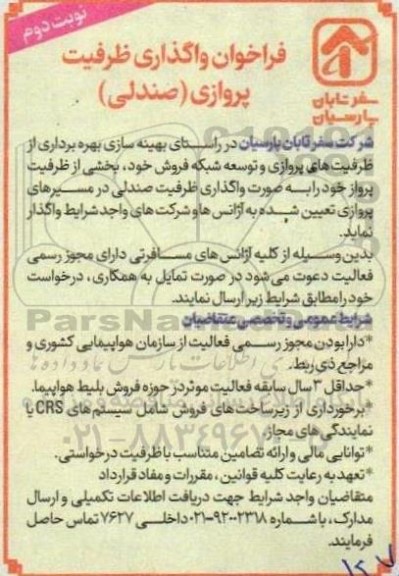 نوبت دوم
سفر تابان
پارسیان
فراخوان واگذاری ظرفیت
پروازی (صندلی)
شرکت سفر تابان پارسیان در راستای بهینه سازی بهره برداری از
ظرفیت های پروازی و توسعه شبکه فروش خود، بخشی از ظرفیت
پرواز خود را به صورت واگذاری ظرفیت صندلی در مسیرهای
پروازی تعیین شده به آژانس ها و شرکت های واجد شرایط واگذار
نماید.
بدین وسیله از کلیه آژانس های مسافرتی دارای مجوز رسمی
فعالیت دعوت می شود در صورت تمایل به همکاری، درخواست
خود را مطابق شرایط زیر ارسال نمایند.
شرایط عمومی و تخصصی متقاضیان
*دارا بودن مجوز رسمی فعالیت از سازمان هواپیمایی کشوری و
مراجع ذی ربط.
*حداقل ۳ سال سابقه فعالیت موثر در حوزه فروش بلیط هواپیما.
*برخورداری از زیرساخت های فروش شامل سیستم های CRS یا
نمایندگی های مجاز.
*توانایی مالی و ارائه تضامین متناسب با ظرفیت درخواستی.
*تعهد به رعایت کلیه قوانین، مقررات و مفاد قرارداد
متقاضیان واجد شرایط جهت دریافت اطلاعات تکمیلی و ارسال
مدارک، با شماره ۹۲۰۰۲۳۱۸-۰۲۱ داخلی ۷۶۲۷ تماس حاصل
فرمایند.
۱۲۷